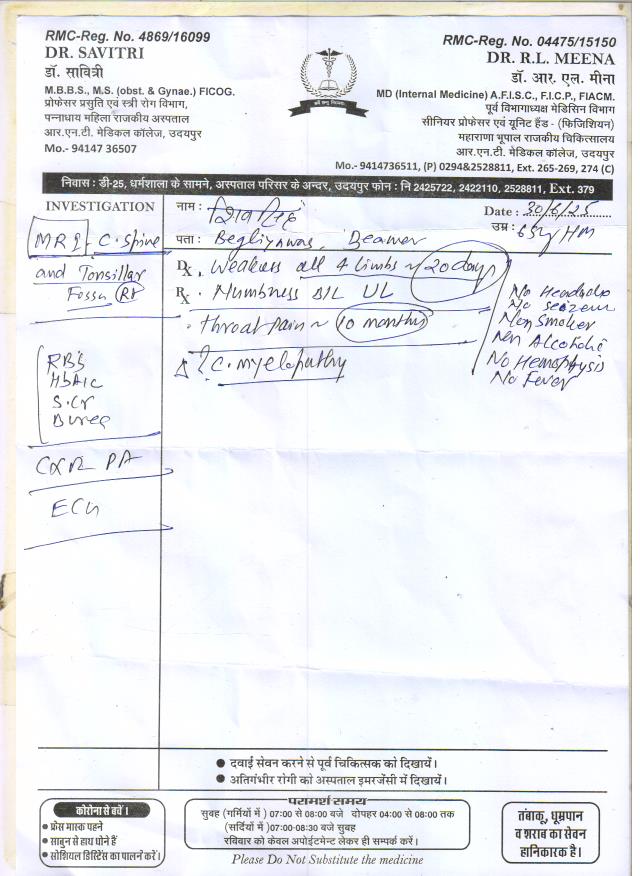 RMC-Reg. No. 4869/16099
DR. SAVITRI
डॉ. सावित्री
M.B.B.S., M.S. (obst. & Gynae.) FICOG.
प्रोफेसर प्रसुति एवं स्त्री रोग विभाग,
पन्नाधाय महिला राजकीय अस्पताल
आर.एन.टी. मेडिकल कॉलेज, उदयपुर
Mo.- 94147 36507
RMC-Reg. No. 04475/15150
DR. R.L. MEENA
डॉ. आर. एल. मीना
MD (Internal Medicine) A.F.I.S.C., F.I.C.P., FIACM.
पूर्व विभागाध्यक्ष मेडिसिन विभाग
सीनियर प्रोफेसर एवं यूनिट हैंड - (फिजिशियन)
महाराणा भूपाल राजकीय चिकित्सालय
आर.एन.टी. मेडिकल कॉलेज, उदयपुर
Mo.- 9414736511, (P) 0294&2528811, Ext. 265-269, 274 (C)
निवास : डी-25, धर्मशाला के सामने, अस्पताल परिसर के अन्दर, उदयपुर फोन : नि 2425722, 2422110, 2528811, Ext. 379
INVESTIGATION
MRI - C. Spine
and Tonsillar
Fossa Rt
RBS
HbA1C
S.Cr
B urea
CXR PA
ECG
नाम :
Date : 30/6/25
पता : Begliyawas, Beawer
उम्र : 65y HM
Dx. Weakness all 4 limbs ~ 20 days
Rx. Numbness B/L UL
Throat pain ~ 10 months
Δ ? C. myelopathy
No Headache
No seizure
Non Smoker
Non Alcoholic
No Hemoptysis
No Fever
दवाई सेवन करने से पूर्व चिकित्सक को दिखायें।
अतिगंभीर रोगी को अस्पताल इमरजेंसी में दिखायें।
कोरोना से बचें।
फ्रेस मास्क पहने
साबुन से हाथ धोने हैं
सोशियल डिस्टिंस का पालन करें।
परामर्श समय
सुबह (गर्मियों में ) 07:00 से 08:00 बजे दोपहर 04:00 से 08:00 तक
(सर्दियों में) 07:00-08:30 बजे सुबह
रविवार को केवल अपोईटमेन्ट लेकर ही सम्पर्क करें।
Please Do Not Substitute the medicine
तंबाकू, धूम्रपान
व शराब का सेवन
हानिकारक है।